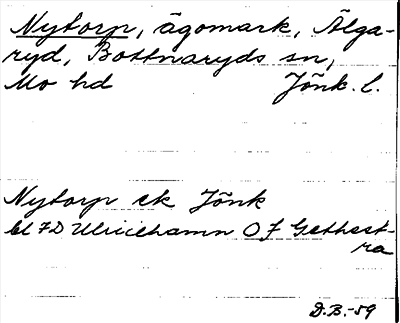 Nytorp, ägomark, Älga-
ryd, Bottnaryds sn,
Mo hd Jönk. l.
Nytorp ek Jönk
bl 7D Ulricehamn O f Gethest-
ra
D.B.-59